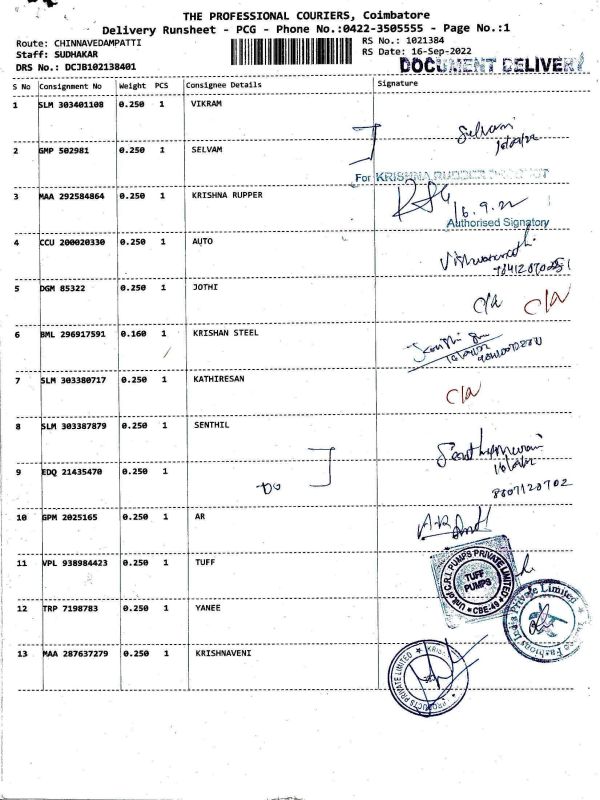 THE PROFESSIONAL COURIERS, Coimbatore
Delivery Runsheet - PCG - Phone No.:0422-3505555 - Page No.:1
Route: CHINNAVEDAMPATTI
RS No.: 1021384
Staff: SUDHAKAR
RS Date: 16-Sep-2022
DRS No.: DCJB102138401
DOCUMENT DELIVERY
S No Consignment No Weight PCS Consignee Details Signature
1 SLM 303401108 0.250 1 VIKRAM
Selvam
2 GMP 502981 0.250 1 SELVAM
For KRISHNA RUBBER PRODUCT
3 MAA 292584864 0.250 1 KRISHNA RUPPER
16.9.22
Authorised Signatory
4 CCU 200020330 0.250 1 AUTO
5 DGM 85322 0.250 1 JOTHI
C/A C/A
6 BML 296917591 0.160 1 KRISHAN STEEL
7 SLM 303380717 0.250 1 KATHIRESAN
C/A
8 SLM 303387879 0.250 1 SENTHIL
9 EDQ 21435470 0.250 1 Do
8807120702
10 GPM 2025165 0.250 1 AR
11 VPL 938984423 0.250 1 TUFF
Unit of C.R.I. PUMPS PRIVATE LIMITED
TUFF
PUMPS
CBE-49
12 TRP 7198783 0.250 1 YANEE
Fashions India Private Limited
13 MAA 287637279 0.250 1 KRISHNAVENI
PRODUCTS PRIVATE LIMITED